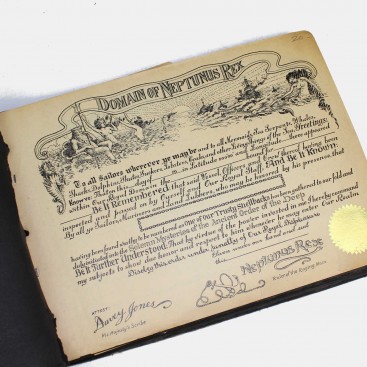 DOMAIN OF NEPTUNUS REX
To all Sailors wherever ye may be and to all Mermaids, Sea Serpents, Whales,
Sharks, Dolphins, Skates, Eels, Suckers, Lobsters, Crabs and other living things of the Sea, Greetings:
Know ye that on this day of in Latitude 00000 and Longitude there appeared
within Our Royal Domain the
Be It Remembered that said Vessel, Officers and Crew thereof having been
inspected and passed on by Ourself and Our Royal Staff, And Be It Known:
By all ye Sailors, Mariners and Land Lubbers, who may be honored by his presence that
having been found worthy to be numbered as one of our Trusty Shellbacks has been gathered to our fold and
duly initiated into the Solemn Mysteries of the Ancient Order of the Deep
Be It Further Understood: That by virtue of the power invested in me I hereby command
my subjects to show due honor and respect to him whenever he may enter Our Realm
Disobey this order under penalty of Our Royal Displeasure
Given under our hand and seal
this
NEPTUNUS REX
Ruler of the Raging Main
ATTEST:
Davey Jones
His Majesty's Scribe